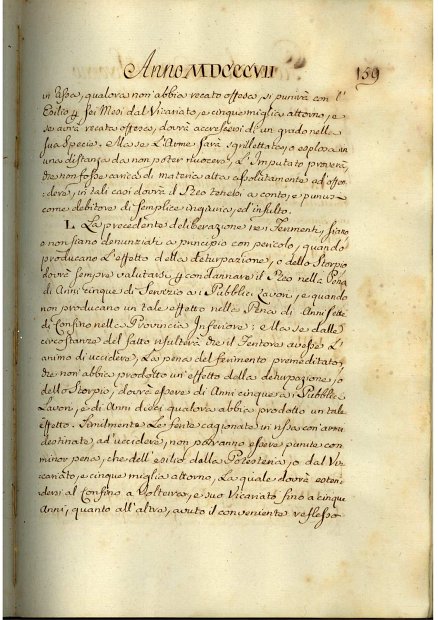 Anno MDCCCVII 159
in essa, qualora non abbia recato offesa, si punirà con l'
Esilio p sei Mesi dal Vicariato, e cinque miglia attorno, e
se avrà recata offesa, dovrà accrescersi di un grado nella
sua specie. Ma se l'Arme sarà sgrillettata, o esplosa in
una distanza da non poter nuocere, L'Imputato proverà,
che non fosse carica di materia atta assolutamente ad offen
dere, in tali casi dovrà il Reo tenersi a conto, e punirsi
come debitore di semplice ingiuria, ed insulto.
L La precedente deliberazione nei Ferimenti, siano
o non siano denunziati a principio con pericolo, quando
producano L'effetto della deturpazione, o dello Storpio
dovrà sempre valutarsi p condannare il Reo nella Pena
di Anni cinque di Servizio ai Pubblici Lavori, e quando
non producano un tale effetto nella Pena di Anni sette
di Confino nella Provincia Inferiore; e Ma se dalle
circostanze del fatto risulterà che il Feritore avesse L'
animo di uccidere, La pena del ferimento premeditato,
che non abbia prodotto un'effetto della deturpazione, o
dello Storpio, dovrà essere di Anni cinque ai Pubblici
Lavori, e di Anni dieci qualora abbia prodotto un tale
effetto. Finalmente Le ferite cagionate in rissa con armi
destinate ad uccidere, non potranno essere punite con
minor pena, che dell'esilio dalla Potesteria, o dal Vi-
cariato, e cinque miglia attorno, La quale dovrà esten
dersi al Confino a Volterra, e suo Vicariato fino a cinque
Anni, quanto all'altre, avuto il conveniente reflesso